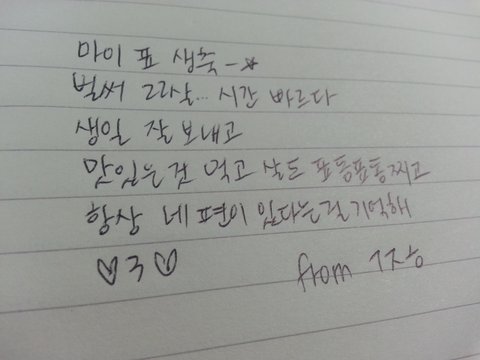 마이 표 생축-☆
벌써 22살... 시간 빠르다
생일 잘 보내고
맛있는것 먹고 살도 표동표동찌고
항상 네 편이 있다는걸 기억해
♡3♡ from